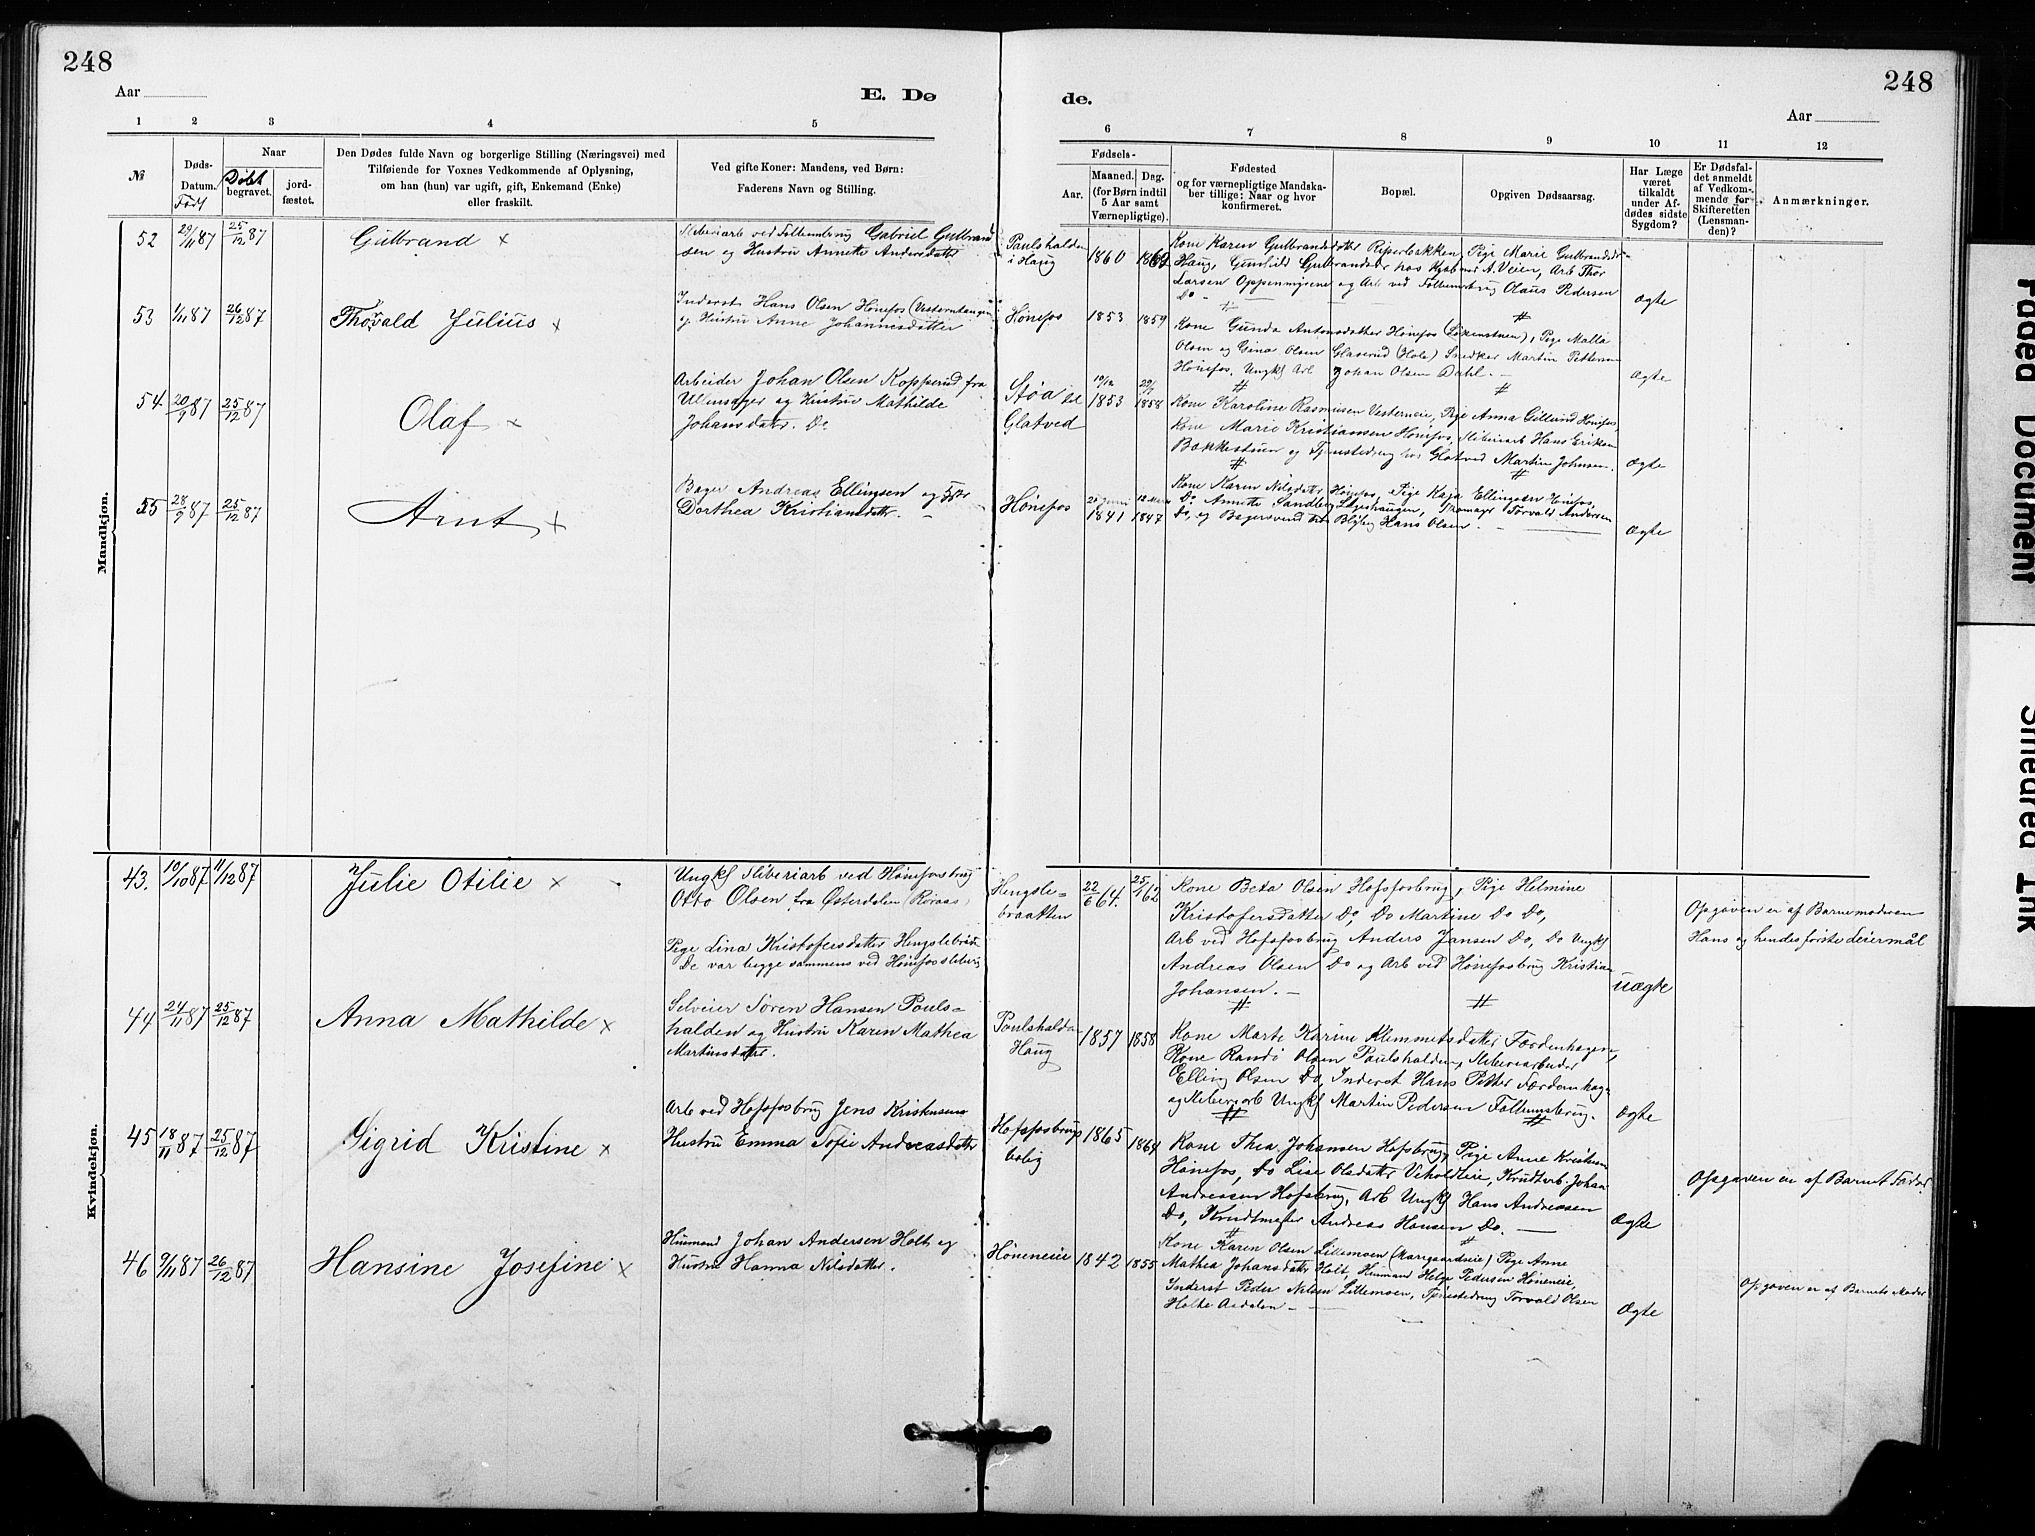 248
248
Aar
E. Dø
de.
Aar
1 2 3 4 5
6 7 8 9 10 11 12
№
Døds-
Datum.
Født
Naar
Døbt
begravet.
jord-
fæstet.
Den Dødes fulde Navn og borgerlige Stilling (Næringsvei) med
Tilføiende for Voxnes Vedkommende af Oplysning,
om han (hun) var ugift, gift, Enkemand (Enke)
eller fraskilt.
Ved gifte Koner: Mandens, ved Børn:
Faderens Navn og Stilling.
Fødsels-
Aar.
Maaned. Dag.
(for Børn indtil
5 Aar samt
Værnepligtige).
Fødested
og for værnepligtige Mandska-
ber tillige: Naar og hvor
konfirmeret.
Bopæl.
Opgiven Dødsaarsag.
Har Læge
været
tilkaldt
under Af-
dødes sidste
Sygdom?
Er Dødsfal-
det anmeldt
af Vedkom-
mende for
Skifteretten
(Lensman-
den)?
Anmærkninger.
Mandkjøn.
52 29/11 87 25/12 87 Gulbrand x
Sliberiarb ved Follumbrug Gabriel Gulbrand
sen og Hustru Annette Andersdatter
Paulshalden
i Haug
1860
Kone Karen Gulbrandsdatter Riperbakken, Pige Marie Gulbrandsdr
Haug, Gunhild Gulbrandsdr hos A. Veien, Arb Thor
Larsen Oppenmyrene og Arb ved Follumsbrug Olaus Pedersen
Do -
Ægte
53 1/11 87 26/12 87 Thorvald Julius x
Inderst Hans Olsen Hønefos (Vesterntangen)
og Hustru Anne Johannesdatter
Hønefos 1853 1859
Kone Gunda Antonsdatter Hønefos (Løkenstuen), Pige Malla
Olsen og Gina Olsen Glaserud (Hole) Snedker Martin Pettersen
Hønefos, Ungkf Arb Johan Olsen Dahl. -
Ægte
54 20/9 87 25/12 87 Olaf x
Arbeider Johan Olsen Kopperud fra
Ullensager og Hustru Mathilde
Johansdatter. Do
Støa
Glatved
10/12 1853 29/7 1858
Kone Karoline Rasmusen Vesterneie, Pige Anna Gillund Hønefos,
Kone Marie Kristiansen Hønefos, Sliberiarb Hans Eriksen
Bakkestuen og Tjenestedreng hos Glatved Martin Johnsen.
Ægte
55 28/9 87 25/12 87 Arnt x
Bager Andreas Ellingsen og Hstr
Dorthea Kristiansdatter. -
Hønefos 1841 1847
Kone Karen Nilsdatter Hønefos, Pige Kaja Ellingsen Hønefos,
Do Annette Sandberg Løgeshaugen, Skomager Torvald Andersen
Do, og Bagersvend Hans Olsen. -
Ægte
Kvindekjøn.
43. 10/10 87 11/12 87 Julie Otilie x
Ungkf Sliberiarb ved Hønefosbrug
Otto Olsen fra Østerdalen (Røraas)
Pige Lina Kristofersdatter Hengslebråt
De var begge sammens ved Hønefossliberi
Hengsle=
braatten
22/6 64. 25/1 62
Kone Beta Olsen Hofsfosbrug, Pige Helmine
Kristofersdatter Do, Do Martine Do Do,
Arb ved Hofsfosbrug Anders Jansen Do, Do Ungkf
Andreas Olsen Do og Arb ved Hønefosbrug Kristian
Johansen. -
uægte
Opgaven er af Barnemoderen
Hans og hendes første Leiermål
44 24/11 87 25/12 87 Anna Mathilde x
Selveier Søren Hansen Pouls=
halden og Hustru Karen Mathea
Martinsdatter.
Poulshalden
Haug
1857 1858
Kone Marte Karine Klemmetsdatter Færdenhagen,
Kone Randi Olsen Paulshalden, Sliberiarbeider
Elling Olsen Do, Inderst Hans Petter Færdenhag
og Sliberiarb Ungkf Martin Pedersen Follumsbrug.
Ægte
45 18/11 87 25/12 87 Sigrid Kristine x
Arb ved Hofsfosbrug Jens Kristensen
Hustru Emma Sofie Andreasdatter
Hofsfosbrugs
bolig
1865 1864
Kone Thea Johansen Hofsbrug, Pige Anne Kristensen
Hønefos, Do Lise Olsdatter Veholdteie, Krudtarb. Johan
Andreasen Hofsbrug, Arb Ungkf Hans Andreasen
Do, Krudtmester Andreas Hansen Do. -
Ægte
Opgaven er af Barnets Fader
46 9/11 87 26/12 87 Hansine Josefine x
Husmand Johan Andersen Holt og
Hustru Hanna Nilsdatter.
Høneneie 1842 1855
Kone Karen Olsen Lillemoen (Marigaardseie) Pige Anne
Mathea Johansdatter Holt, Husmand Helge Pedersen Høneneie,
Inderst Peder Nilsen Lillemoen, Tjenestedreng Torvald Olsen
Holte Aadalen -
Ægte
Opgaven er af Barnets Moder
Faded Document
Smeared Ink